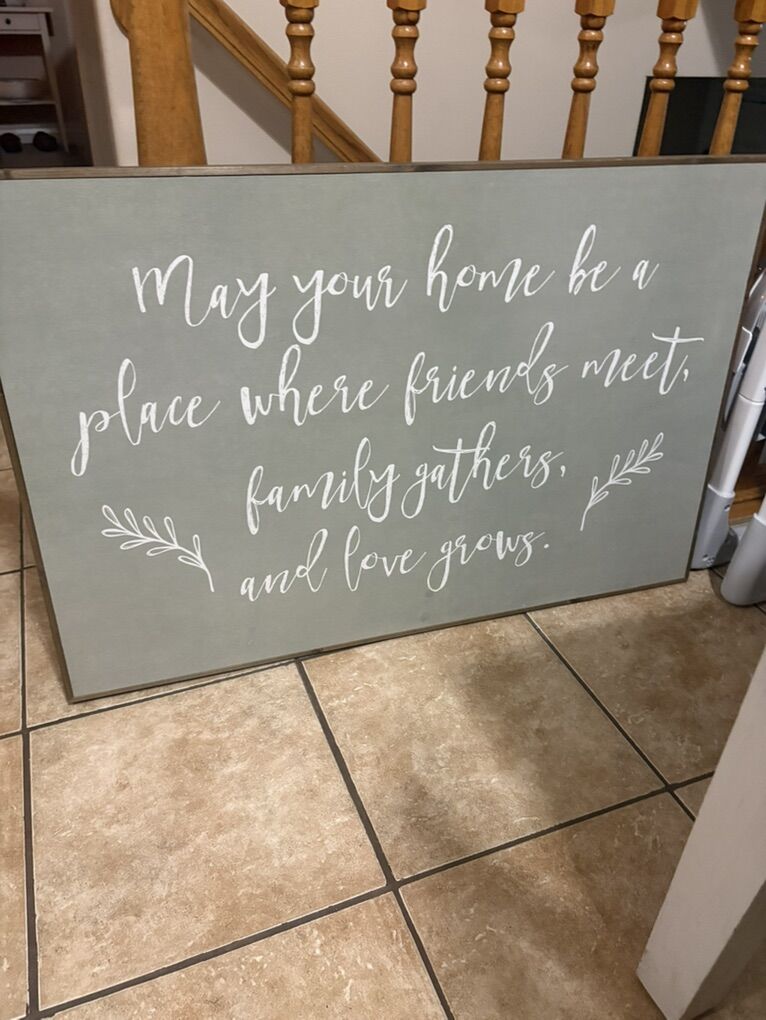 May your home be a
place where friends meet,
family gathers,
and love grows.